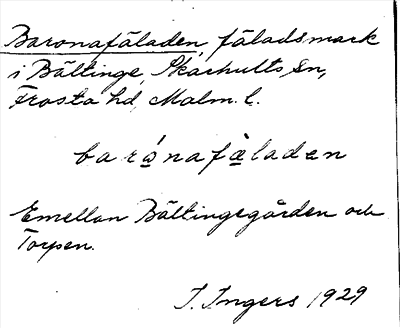 Baronafäladen, fäladsmark
i Bältinge, Skarhults sn,
Frosta hd, Malm. l.
barónafäladen
Emellan Bältingegården och
Torpen.
I. Ingers 1929